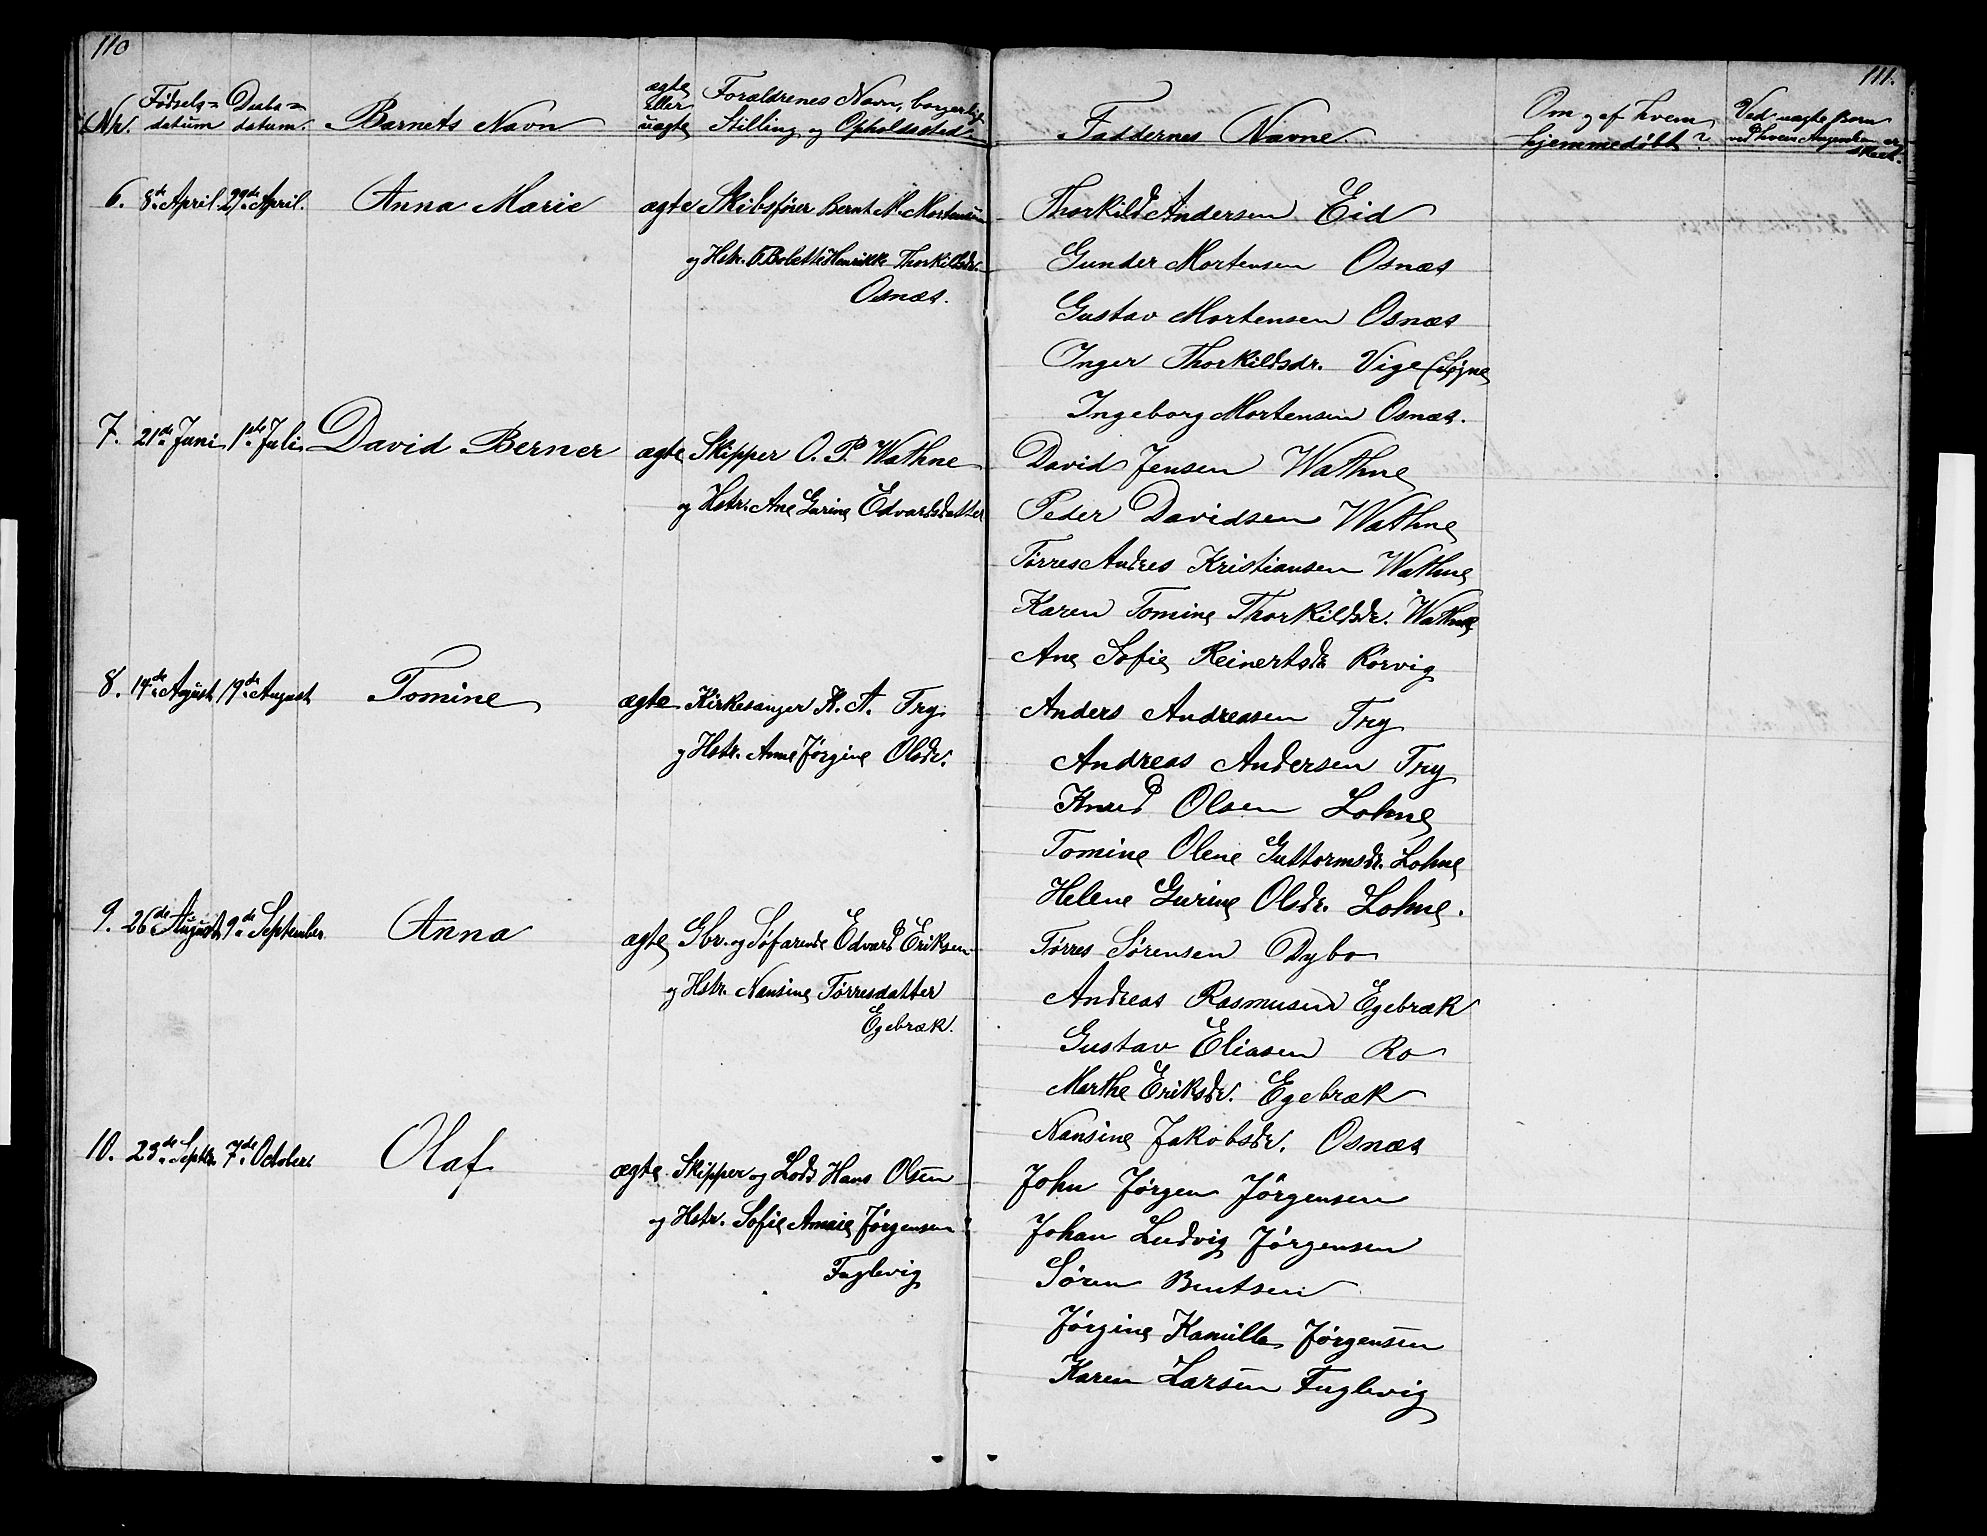 110
111.
Nr. Fødsels= datum Daabs= datum. Barnets Navn ægte eller uægte Forældrenes Navn, borgerlig Stilling og Opholdssted Faddernes Navne. Om og af hvem hjemmedøbt? Ved uægte Børn
6. 8de April 29de April. Anna Marie ægte Skibsfører Bernt M. Mortensen
og Hstr. Bolette Henrikke Thorkildsdr.
Osnæs.
Thorkild Andersen Eid
Gunder Mortensen Osnæs
Gustav Mortensen Osnæs
Inger Thorkildsdr. Vige (Søgne
Ingeborg Mortensen Osnæs.
7. 21de Juni 1ste Juli David Berner ægte Skipper O. P. Wathne
og Hstr. Ane Gurine Edvardsdatter
David Jensen Wathne
Peder Davidsen Wathne
Tørres Andres Kristiansen Wathne
Karen Tomine Thorkildsdr. Wathne
Ane Sofie Reinertsdr Rørvig
8. 14de August 19de August Tomine ægte Kirkesanger K. A. Try
og Hstr. Anne Jørgine Olsdr.
Anders Andreasen Try
Andreas Andersen Try
Knud Olsen Lohne
Tomine Olene Guttormsdr. Lohne
Helene Gurine Olsdr. Lohne.
9. 26de August 9de September Anna ægte Gbr. og Søfarende Edvard Eriksen
og Hstr. Nansine Tørresdatter
Egebræk.
Tørres Sørensen Dybo
Andreas Rasmusen Egebræk
Gustav Eliasen Ro
Marthe Eriksdr. Egebræk
Nansine Jakobsdr. Osnæs
10. 23de Septbr. 7de October Olaf ægte Skipper og Lods Hans Olsen
og Hstr. Sofie Amalie Jørgensen
Fuglevig
John Jørgen Jørgensen
Johan Ludvig Jørgensen
Søren Bentsen
Jørgine Kamilla Jørgensen
Karen Larsen Fuglevig